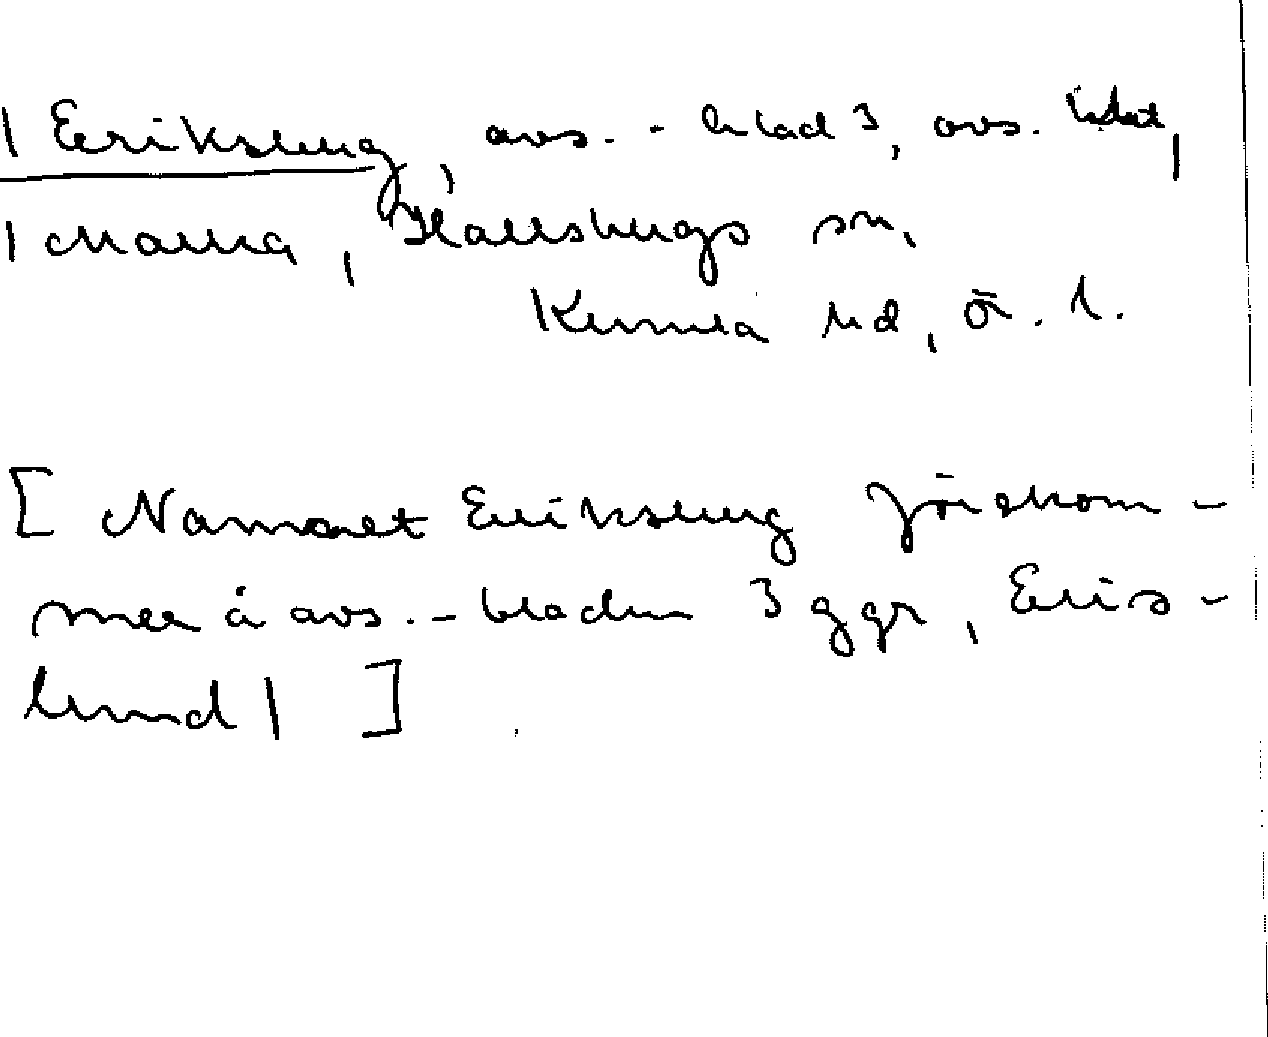 | Eriksberg, avs. - blad 3, avs.
| Maina, Hallsbergs sn,
Kumla hd, ö. l.
[ Namnet Eriksberg förekom-
mer å avs. - bladen 3 ggr, Eriks-
lund | ]